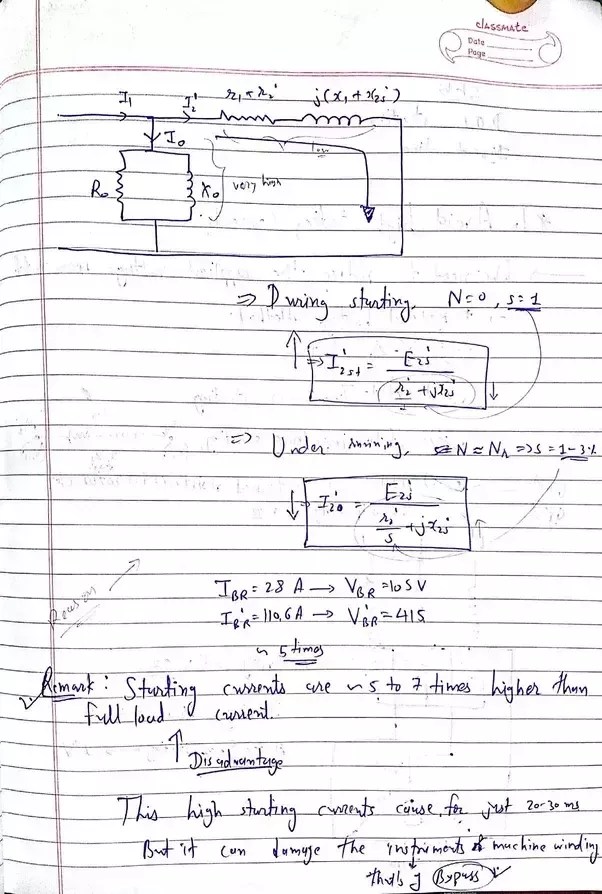 classmate
Date
Page
I₁ I₂' r₁ + r₂' j(x₁ + x₂s')
I₀ Low
R₀ X₀ very high
⇒ During starting, N=0, s=1
↑ ⇒ I₂st' = E₂s' / (r₂' + jx₂s') ↓
⇒ Under running, N ≈ Ns ⇒ s = 1-3%
↓ I₂₀' = E₂s' / (r₂'/s + jx₂s') ↑
I_BR = 28 A → V_BR = 105 V
Reason I_BR' = 110.6A → V_BR' = 415
~ 5 times
Remark: Starting currents are ~ 5 to 7 times higher than
full load current.
↑ Disadvantage
This high starting currents cause for just 20-30 ms
But it can damage the instruments & machine winding
that's Bypass